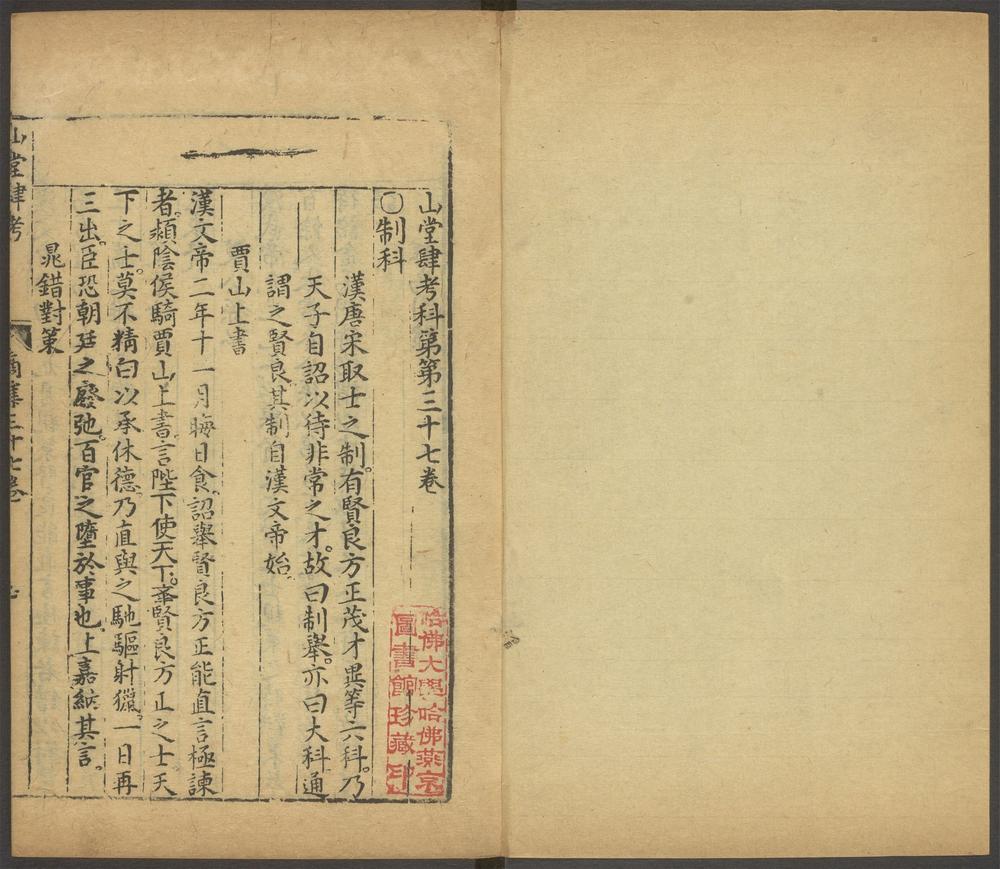 山堂肆考科第第三十七卷
○制科
漢唐宋取士之制。有賢良方正茂才異等六科。乃
天子自詔以待非常之才。故曰制舉。亦曰大科通
謂之賢良。其制自漢文帝始。
賈山上書
漢文帝二年十一月晦日食。詔舉賢良方正能直言極諫
者。潁陰侯騎賈山上書。言陛下使天下。舉賢良方正之士。天
下之士。莫不精白以承休德。乃直與之馳驅射獵。一日再
三出。臣恐朝廷之廢弛。百官之墮於事也。上嘉納其言。
晁錯對策
山堂肆考
三十七卷
哈佛大學哈佛燕京
圖書館珍藏印